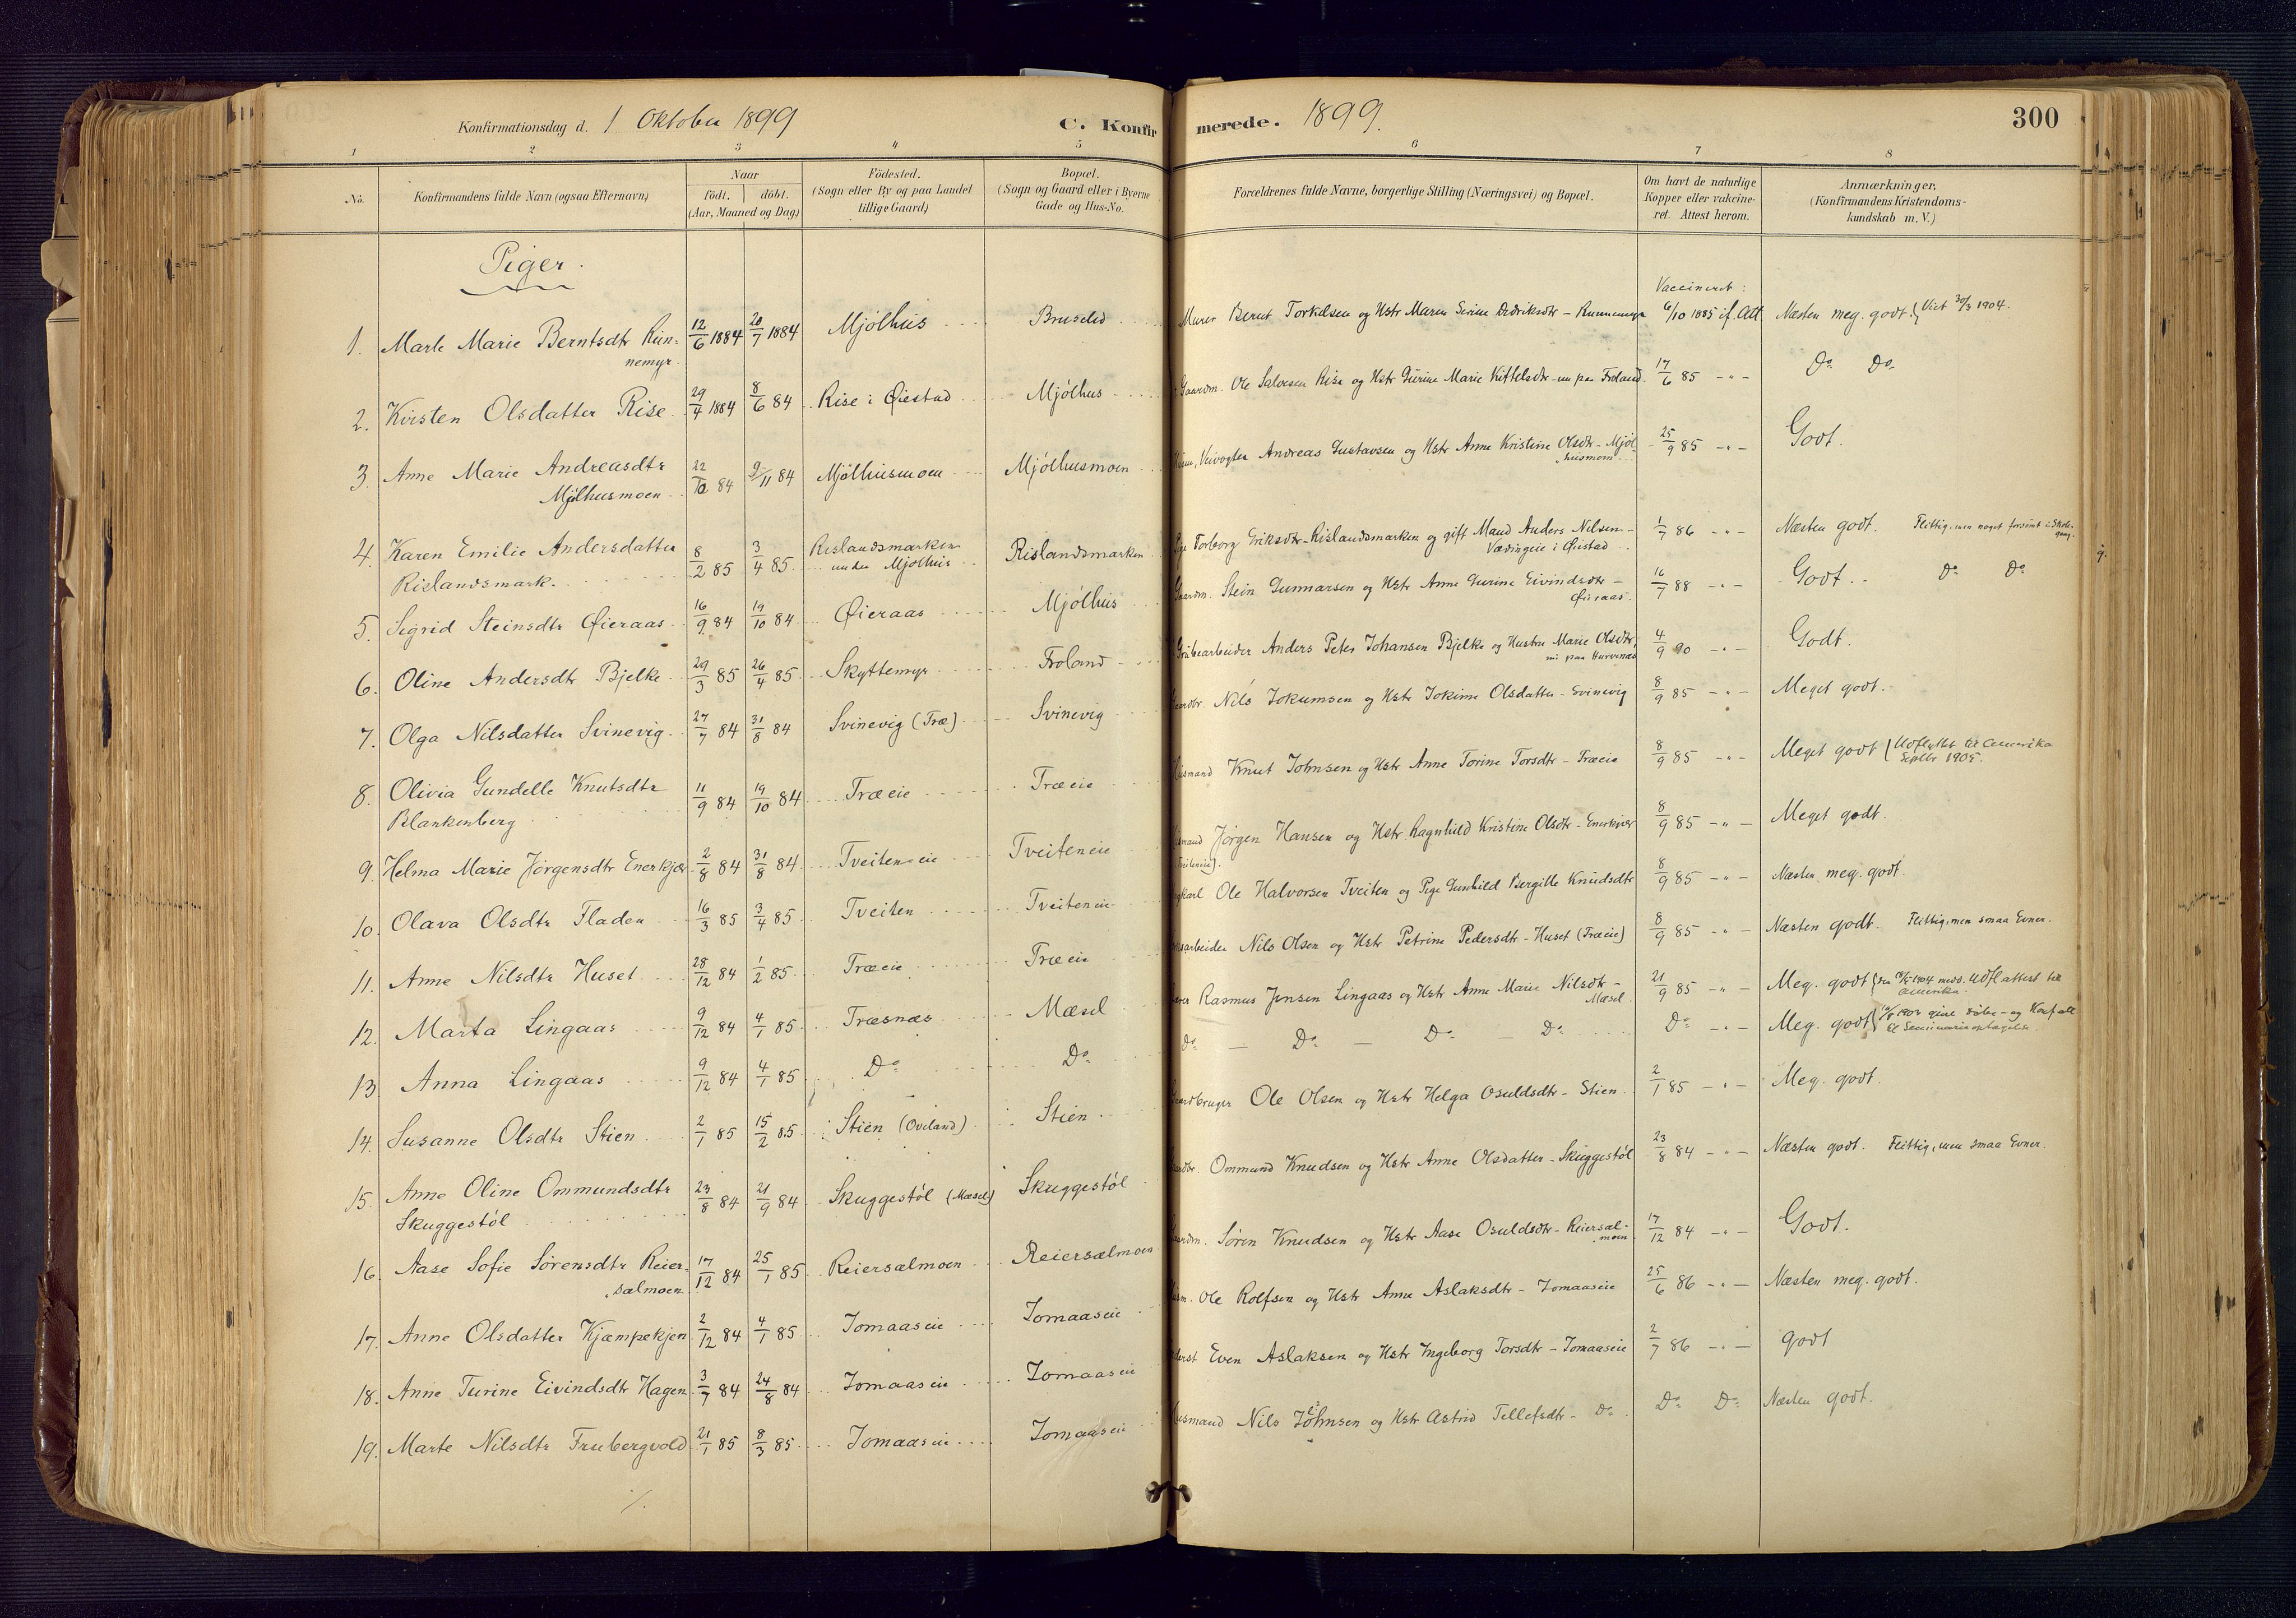 Konfirmationsdag d. 1 Oktober 1899
C. Konfirmerede. 1899.
300
1 2 3 4 5 6 7 8
No.
Konfirmandens fulde Navn (ogsaa Efternavn)
Naar
födt. döbt.
(Aar, Maaned og Dag)
Födested.
(Sogn eller By og paa Landet
tillige Gaard)
Bopæl.
(Sogn og Gaard eller i Byerne
Gade og Hus-No.
Forældrenes fulde Navne, borgerlige Stilling (Næringsvei) og Bopæl.
Om havt de naturlige
Kopper eller vakcine-
ret. Attest herom.
Anmærkninger.
(Konfirmandens Kristendoms-
kundskab m. V.)
Piger.
Vaccineret:
1. Marte Marie Berntsdtr 12/6 1884 20/7 1884 Mjölhus Murer Bernt Torkelsen og Hstr Maren Serine Didriksdtr - 6/10 1885 if. Att. Næsten meg. godt. { Viet 30/3 1904.
nemyr.
2. Kirsten Olsdatter Rise 29/4 1884 8/6 84 Rise i Øiestad Mjólhus Gaardm. Ole Salvesen Rise og Hstr Gurine Marie Kittelsdtr - nu paa Froland. 17/6 85 -"- Do Do
3. Anne Marie Andreasdtr 22/10 84 9/11 84 Mjölhusmoen Mjólhusmoen Veivogter Andreas Gustavsen og Hstr Anne Kristine Olsdtr - Mjöl- 25/9 85 -"- Godt.
Mjølhusmoen husmoen
4. Karen Emilie Andersdatter 8/2 85 3/4 85 Rislandsmarken Rislandsmarken Torborg Eriksdtr - Rislandsmarken og gift Mand Anders Nilsen - 1/7 86 -"- Næsten godt. Flittig, men noget forsömt i Skole-
gang.
Rislandsmark. under Mjölhus i Øiestad
5. Sigrid Steinsdtr Øieraas 16/9 84 19/10 84 Øieraas Mjólhus Gaardm. Stein Gunnarsen og Hstr Anne Gurine Eivindsdtr - 16/7 88 -"- Godt. Do Do
Øieraas.
6. Oline Andersdtr Bjelke 29/3 85 26/4 85 Skyttemyr Froland Grubearbeider Anders Peter Johansen Bjelke og Hustru Marie Olsdtr, 4/9 90 -"- Godt.
nu paa
7. Olga Nilsdatter Svinevig 27/7 84 31/8 84 Svinevig (Træ) Svinevig Nils Jokumsen og Hstr Jokime Olsdatter - Svinevig 8/9 85 -"- Meget godt.
8. Olivia Gundelle Knutsdtr 11/9 84 19/10 84 Træeie Træeie Husmand Knut Johnsen og Hstr Anne Torine Torsdtr - Træeie 8/9 85 -"- Meget godt { Udflyttet til Amerika
Septbr 1905.
Blankenberg
9. Helma Marie Jörgensdtr Enerkjær 2/8 84 31/8 84 Tveiteneie Tveiteneie Husmand Jörgen Hansen og Hstr Ragnhild Kristine Olsdtr - Enerkjær 8/9 85 -"- Meget godt.
(Tveiteneie).
10. Olava Olsdtr Fladen 16/3 85 3/4 85 Tveiten Tveiteneie Ole Halvorsen Tveiten og Pige Gunhild Bergitte Knudsdtr 8/9 85 -"- Næsten meg. godt.
11. Anne Nilsdtr Huset 28/12 84 1/2 85 Træeie Træeie Nils Olsen og Hstr Petrine Pedersdtr - Huset (Træeie) 8/9 85 -"- Næsten godt. Flittig, men smaa Evner.
12. Marta Lingaas 9/12 84 4/1 85 Træsnæs Mæsel Rasmus Jensen Lingaas og Hstr Anne Marie Nilsdtr - 21/9 85 -"- Meg. godt { 1904 medd. Udfl attest til
Amerika.
Mæsel.
13. Anna Lingaas 9/12 84 4/1 85 Do Do Do - Do - Do - Do Do -"- Meg. godt { 1902 givet döbe- og Konf att
til Seminarieoptagelse
14. Susanne Olsdtr Stien 2/1 85 15/2 85 Stien (Oveland) Stien Gaardbruger Ole Olsen og Hstr Helga Osuldsdtr - Stien. 2/1 85 -"- Meg. godt.
15. Anne Oline Ommundsdtr 23/8 84 21/9 84 Skuggestöl (Mæsel) Skuggestól Ommund Knudsen og Hstr Anne Olsdatter - Skuggestól 23/8 84 -"- Næsten godt. Flittig, men smaa Evner.
Skuggestól
16. Aase Sofie Sörensdtr Reier- 17/12 84 25/1 85 Reiersælmoen Reiersælmoen Gaardm. Sören Knudsen og Hstr Aase Osuldsdtr - Reiersæl- 17/12 84 -"- Godt.
sælmoen moen
17. Anne Olsdatter Kjæmpekjen 2/12 84 4/1 85 Jomaaseie Jomaaseie Husm. Ole Rolfsen og Hstr Anne Aslaksdtr - Jomaaseie 25/6 86 -"- Næsten meg. godt.
18. Anne Turine Eivindsdtr Hagen 3/7 84 24/8 84 Jomaaseie Jomaaseie Even Aslaksen og Hstr Ingeborg Torsdtr - Jomaaseie 2/7 86 -"- godt
19. Marte Nilsdtr Frubergvold 21/1 85 8/3 85 Jomaaseie Jomaaseie Husmand Nils Johnsen og Hstr Astrid Tellefsdtr - Do. Do Do Næsten godt.